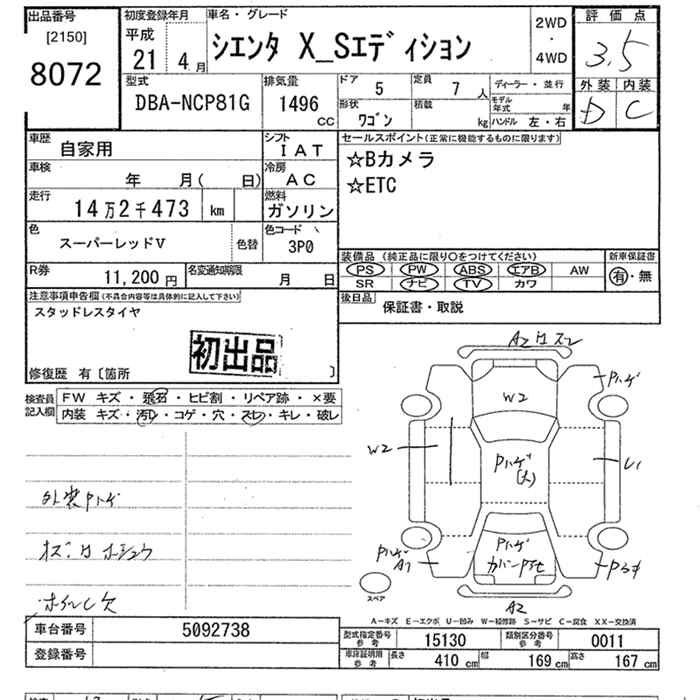 出品番号
[2150]
8072
初度登録年月
平成
21 4 月
車名・グレード
シエンタ X_Sエディション
2WD
・
4WD
評価点
3.5
外装 内装
D C
型式
DBA-NCP81G
排気量
1496
CC
ドア 5
定員 7 人
形状 ワゴン
積載 kg
ディーラー・並行
モデル年式 年
ハンドル 左・右
車歴 自家用
シフト IAT
車検 年 月( 日)
冷房 AC
走行 14万2千473 km
燃料 ガソリン
色 スーパーレッドV 色替
色コード 3P0
R券 11,200 円
名変通知期限 月 日
セールスポイント(正常に機能するものに限ります)
☆Bカメラ
☆ETC
装備品(純正品に限り○をつけてください)
PS PW ABS エアB AW
SR ナビ TV カワ
新車保証書
有・無
後日品 保証書・取説
注意事項申告欄(不具合内容等は具体的に記入して下さい)
スタッドレスタイヤ
初出品
修復歴 有〔箇所 〕
検査員記入欄
FW キズ・飛石・ヒビ割・リペア跡・×要
内装 キズ・汚レ・コゲ・穴・スレ・キレ・破レ
外装Pハゲ
ホイールC欠
A2
W2
Pハゲ
W2
Pハゲ(大)
U1
Pハゲ
A1
Pハゲ
A2
スペア
A-キズ E-エクボ U-凹み W-補修跡 S-サビ C-腐食 XX-交換済
車台番号 5092738
登録番号
型式指定番号参考 15130
類別区分番号参考 0011
車庫証明用参考 長さ 410 cm 幅 169 cm 高さ 167 cm